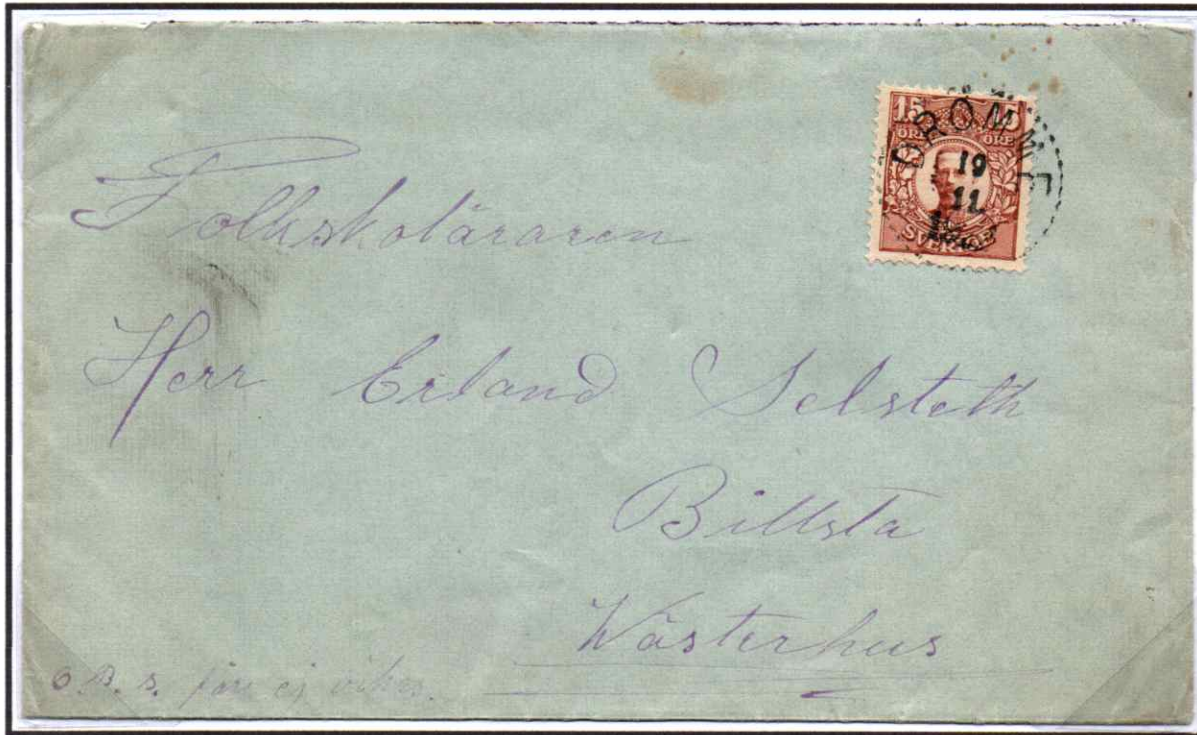 15 15
ÖRE ÖRE
SVERIGE
DRÖMME
19
11
Folkskoläraren
Herr Erland Selsteth
Billsta
Wästerhus
O.B.s. får ej vikas.